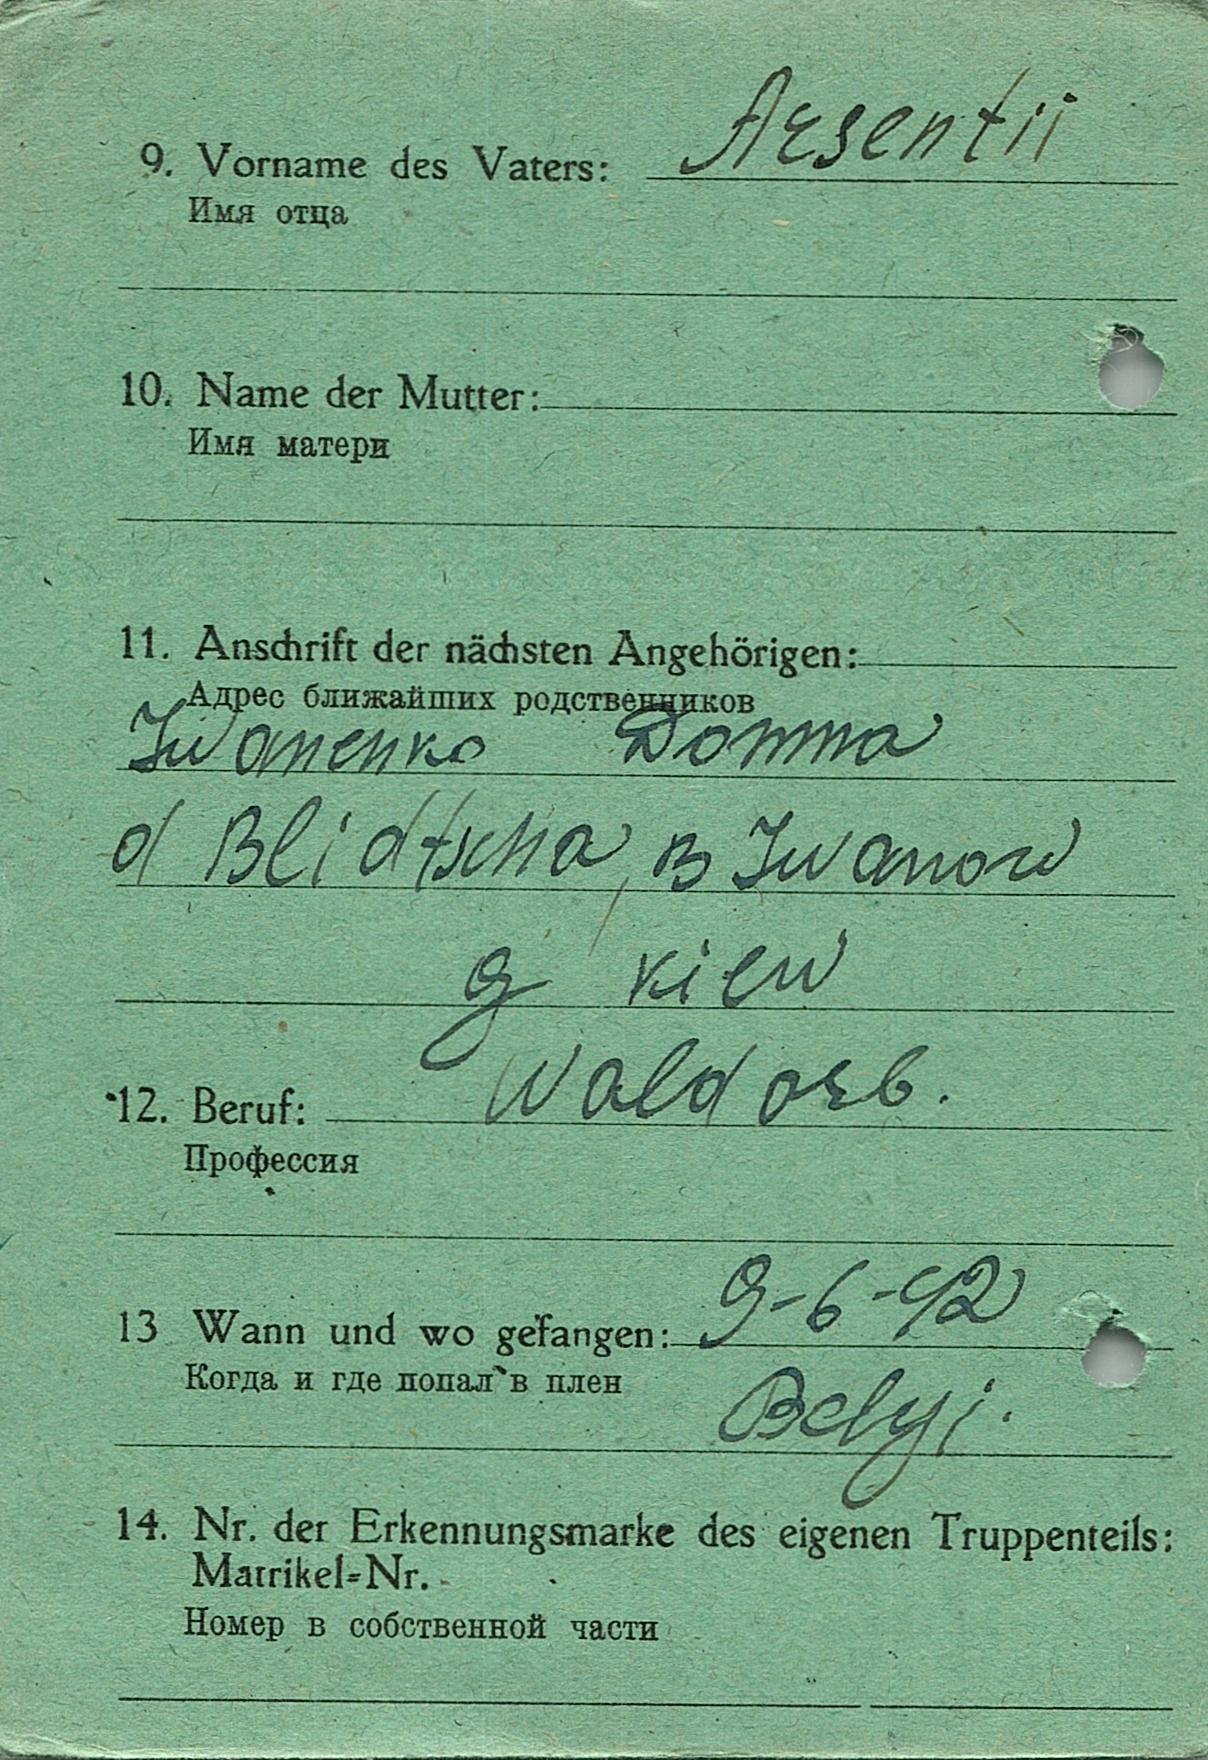 9. Vorname des Vaters: Arsentii
Имя отца
10. Name der Mutter:
Имя матери
11. Anschrift der nächsten Angehörigen:
Адрес ближайших родственников
Iwanenko Domna
d Blidtscha, B Iwanow
g Kiew
12. Beruf: Waldarb.
Профессия
13 Wann und wo gefangen: 9-6-42
Когда и где попал в плен
Belyj.
14. Nr. der Erkennungsmarke des eigenen Truppenteils:
Matrikel=Nr.
Номер в собственной части